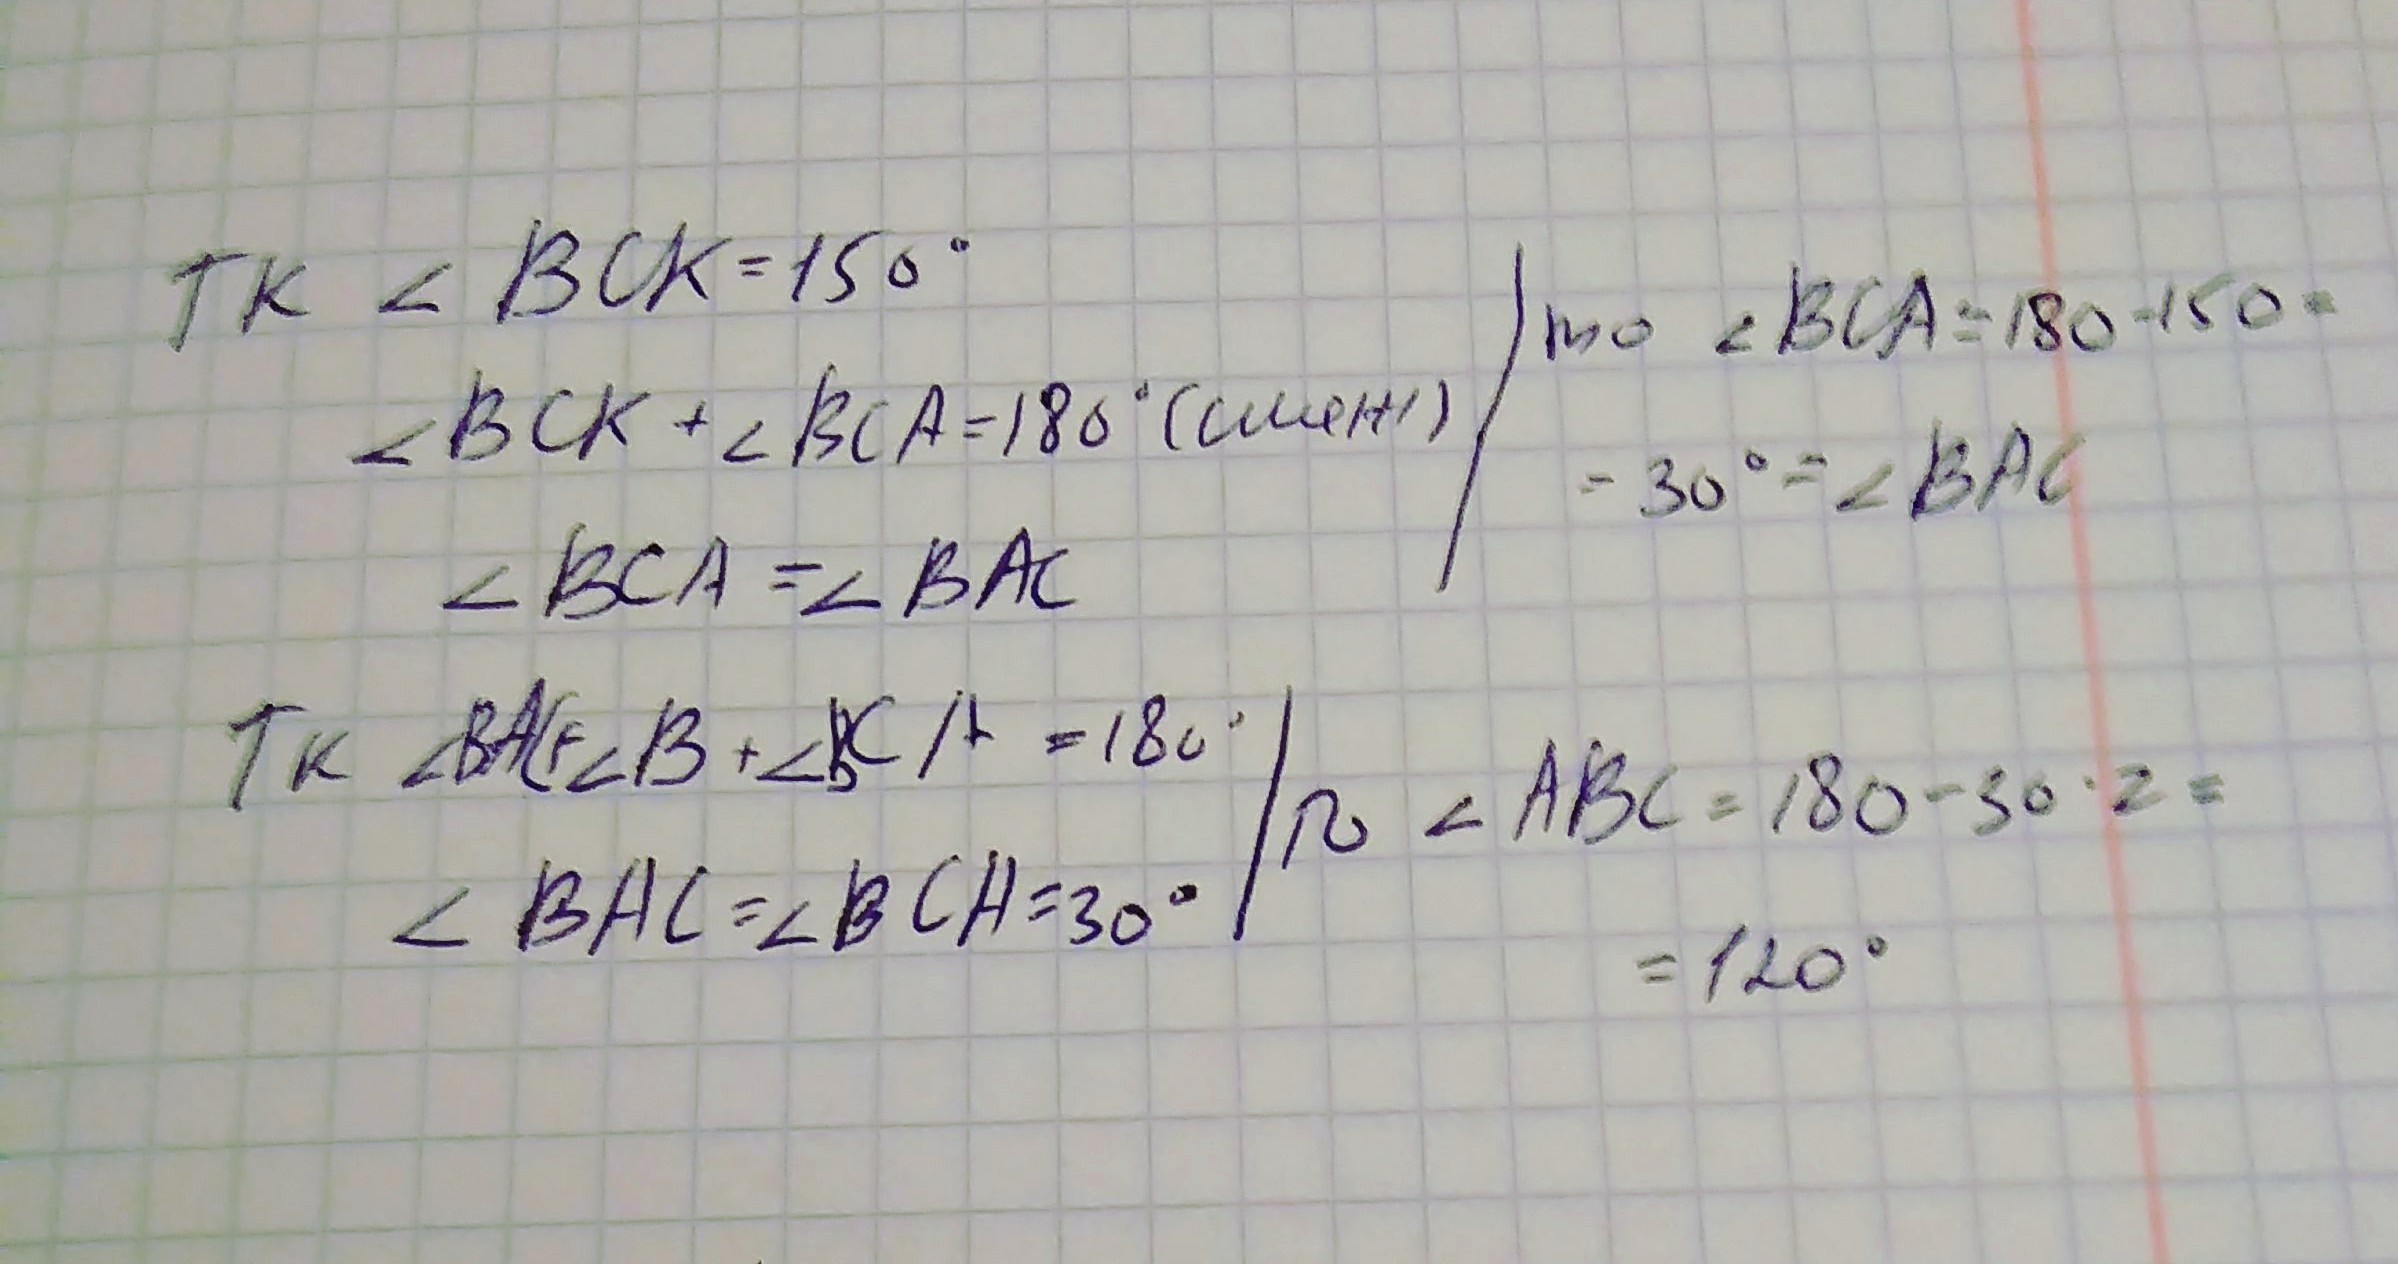 Тк ∠BCK=150°
∠BCK+∠BCA=180°(смежн)
∠BCA=∠BAC
то ∠BCA=180-150=
=30°=∠BAC
Тк ∠BAC+∠B+∠BCA=180°
∠BAC=∠BCA=30°
то ∠ABC=180-30·2=
=120°